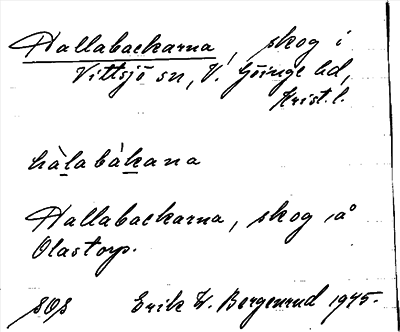 Hallabackarna, skog i
Vittsjö sn, V. Göinge hd,
Krist. l.
hàlabàkana
Hallabackarna, skog å
Olastorp.
SOS Erik W. Bergenrud 1945.